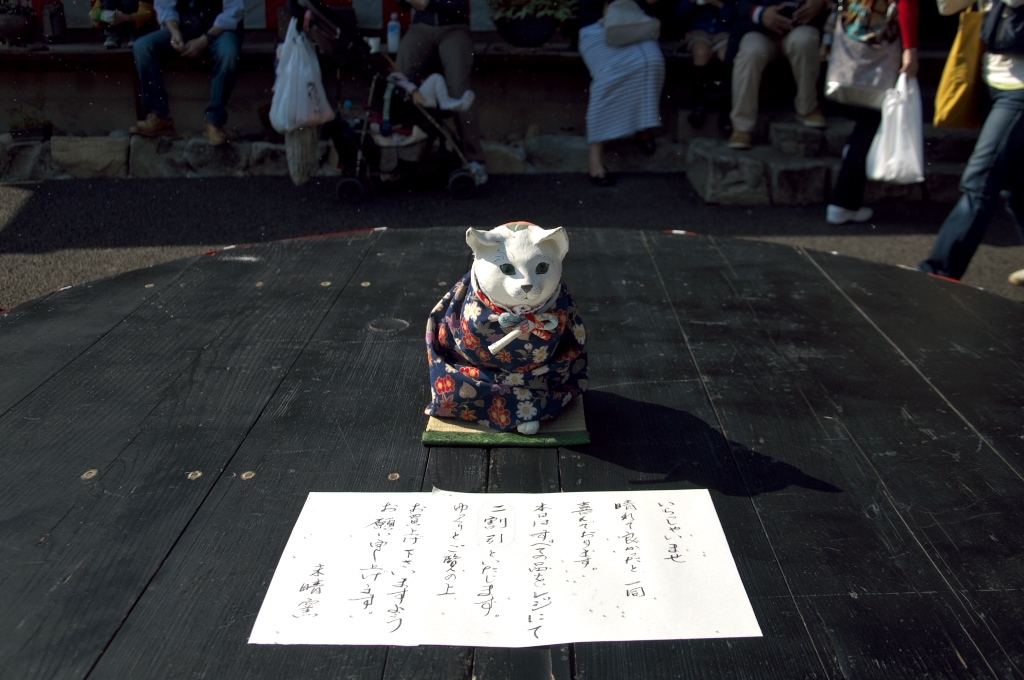 いらっしゃいませ
晴れて良かったと一同
喜んでおります。
本日はすべての品をレジにて
二割引といたします。
ゆっくりとご覧の上
お買上げ下さいますよう
お願い申し上げます。
晴窯